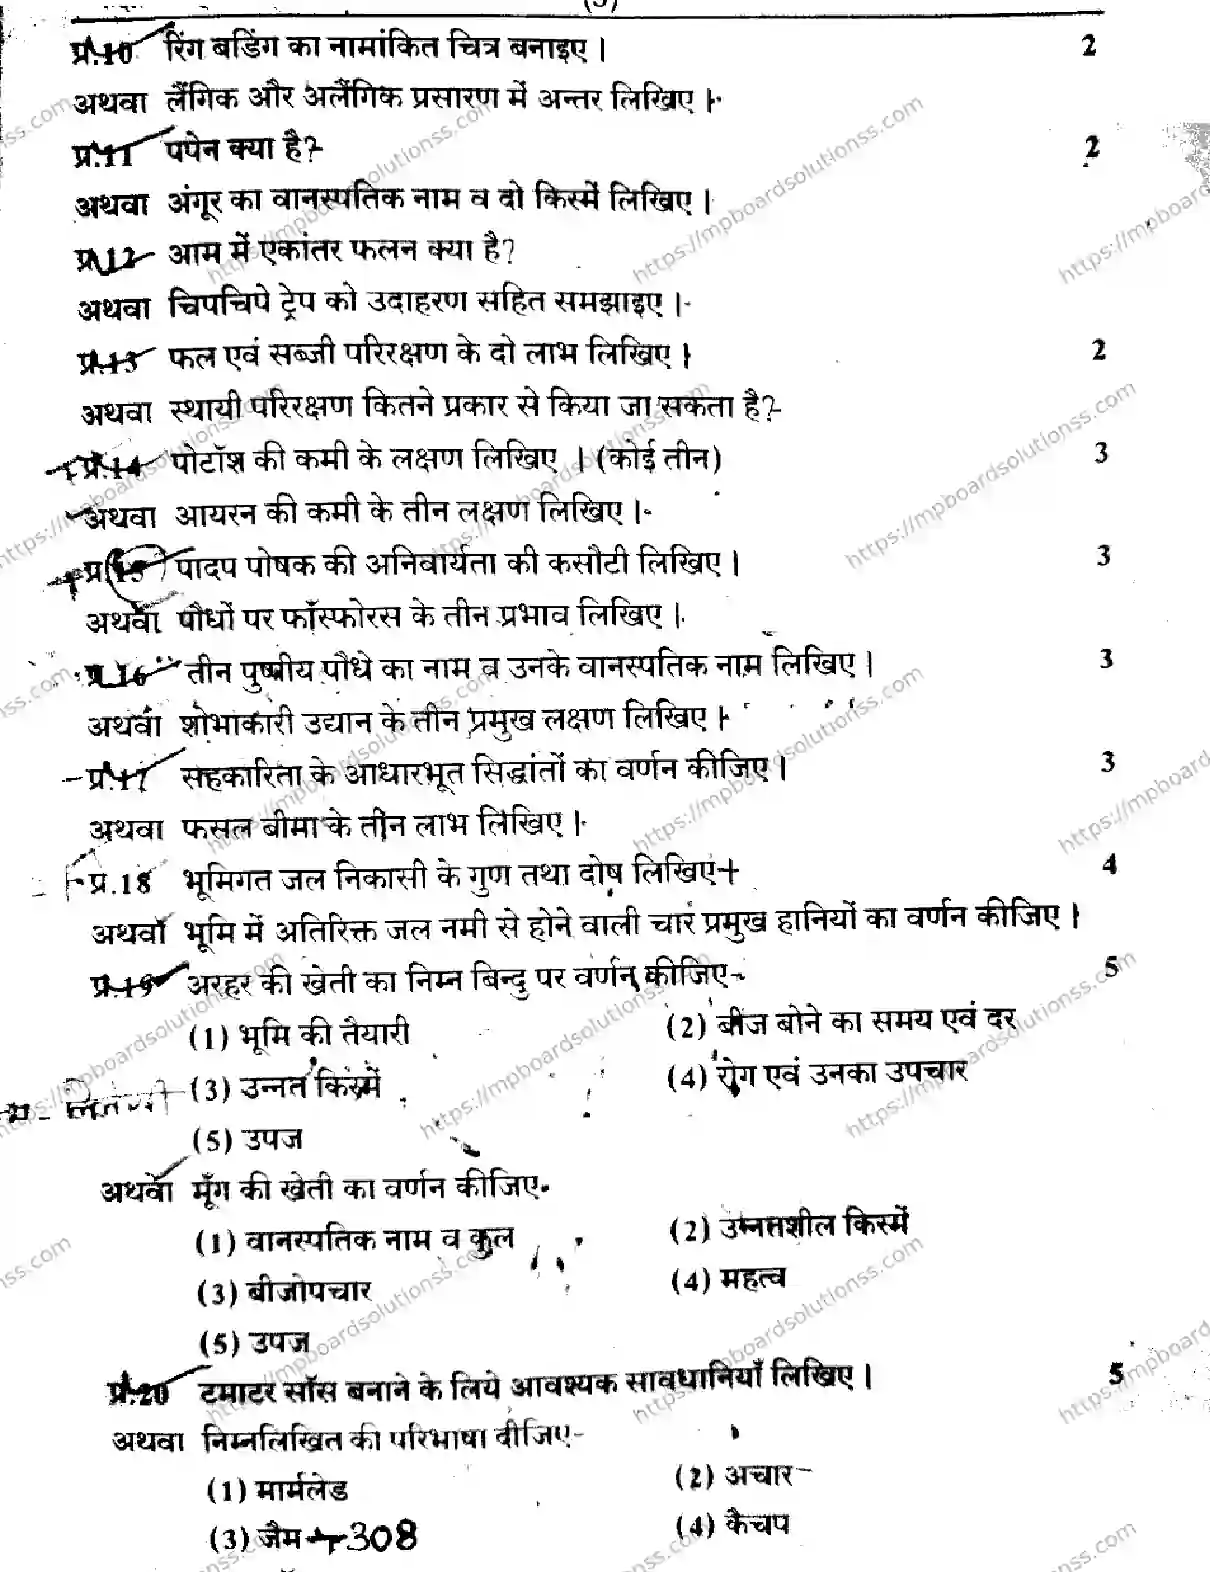 प्र.10 रिंग बडिंग का नामांकित चित्र बनाइए। 2
अथवा लैंगिक और अलैंगिक प्रसारण में अन्तर लिखिए।
प्र.11 पपेन क्या है? 2
अथवा अंगूर का वानस्पतिक नाम व दो किस्में लिखिए।
प्र.12 आम में एकांतर फलन क्या है?
अथवा चिपचिपे ट्रेप को उदाहरण सहित समझाइए।
प्र.13 फल एवं सब्जी परिरक्षण के दो लाभ लिखिए। 2
अथवा स्थायी परिरक्षण कितने प्रकार से किया जा सकता है?
प्र.14 पोटॉश की कमी के लक्षण लिखिए । (कोई तीन) 3
अथवा आयरन की कमी के तीन लक्षण लिखिए।
प्र.15 पादप पोषक की अनिवार्यता की कसौटी लिखिए। 3
अथवा पौधों पर फॉस्फोरस के तीन प्रभाव लिखिए।
प्र.16 तीन पुष्पीय पौधे का नाम व उनके वानस्पतिक नाम लिखिए। 3
अथवा शोभाकारी उद्यान के तीन प्रमुख लक्षण लिखिए।
प्र.17 सहकारिता के आधारभूत सिद्धांतों का वर्णन कीजिए। 3
अथवा फसल बीमा के तीन लाभ लिखिए।
प्र.18 भूमिगत जल निकासी के गुण तथा दोष लिखिए। 4
अथवा भूमि में अतिरिक्त जल नमी से होने वाली चार प्रमुख हानियों का वर्णन कीजिए।
प्र.19 अरहर की खेती का निम्न बिन्दु पर वर्णन कीजिए- 5
(1) भूमि की तैयारी (2) बीज बोने का समय एवं दर
(3) उन्नत किस्में (4) रोग एवं उनका उपचार
(5) उपज
अथवा मूँग की खेती का वर्णन कीजिए-
(1) वानस्पतिक नाम व कुल (2) उन्नतशील किस्में
(3) बीजोपचार (4) महत्व
(5) उपज
प्र.20 टमाटर सॉस बनाने के लिये आवश्यक सावधानियाँ लिखिए। 5
अथवा निम्नलिखित की परिभाषा दीजिए-
(1) मार्मलेड (2) अचार
(3) जैम 308 (4) कैचप
https://mpboardsolutionss.com